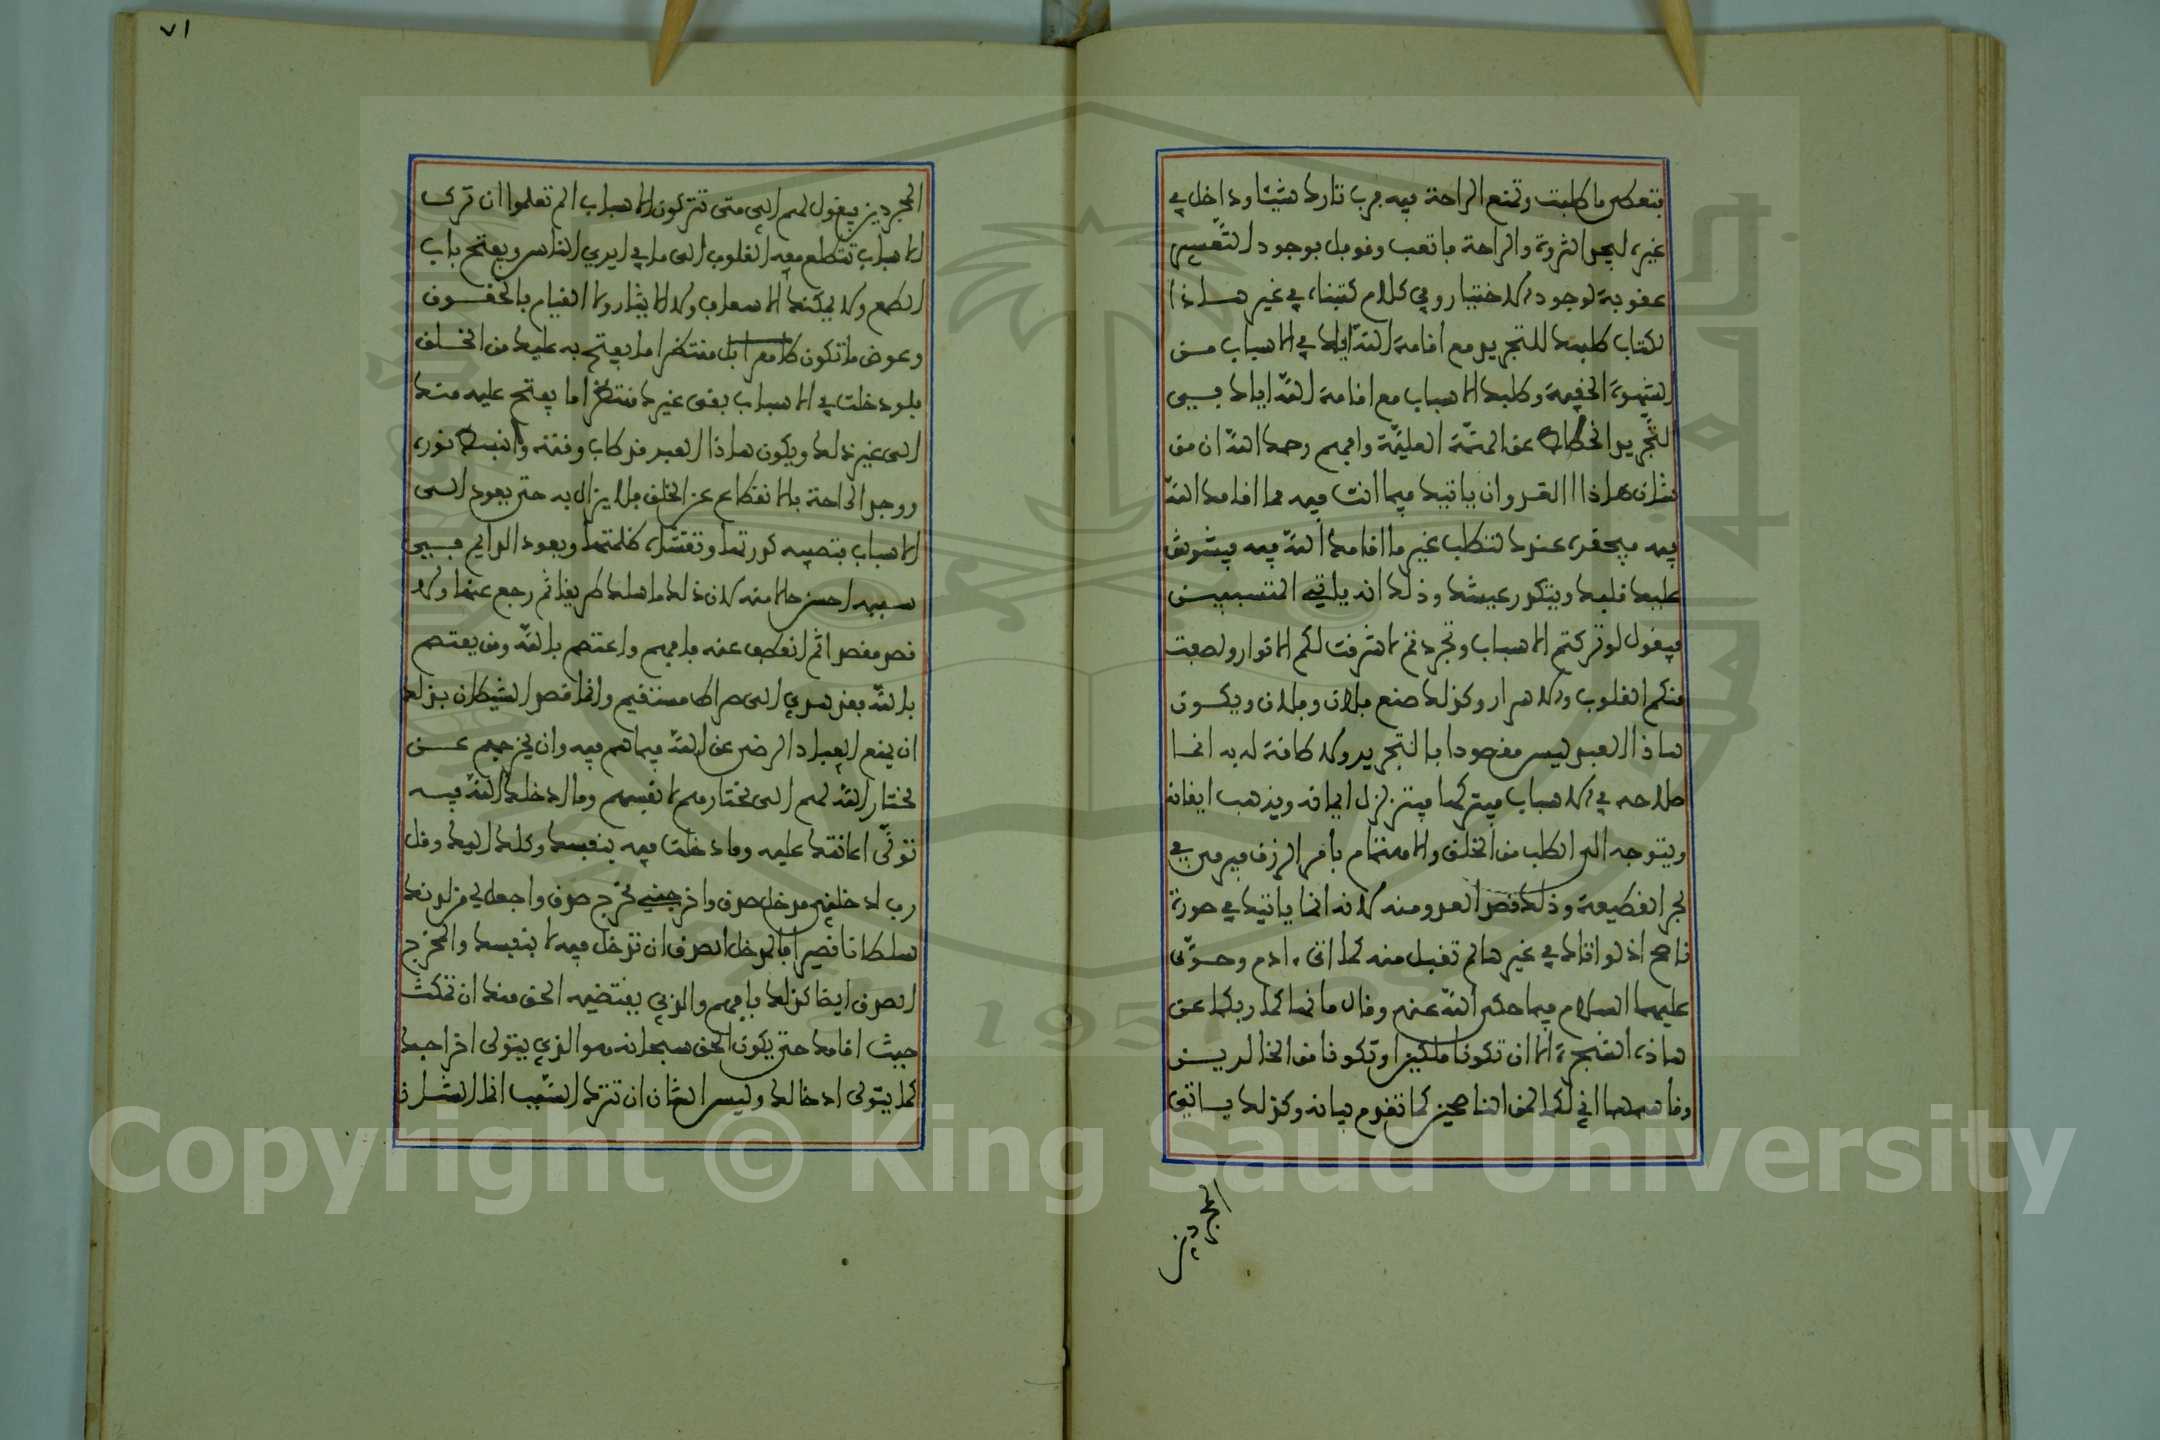 فتعطى ما طلبت وتمنع الراحة فيه فرب تارك شيئا وداخل في
غيره ليجد الثروة والراحة فاتعب وقوبل بوجود التعسير
عقوبة لوجود الاختيار وفي كلام كتبناه في غير هاذا
الكتاب طلبك للتجريد مع اقامة الله اياك في الاسباب من
الشهوة الخفية وطلبك الاسباب مع اقامة الله اياك في
التجريد انحطاط عن الهمة العلية وافهم رحمك الله ان من
شان هاذا العدو ان ياتيك فيما انت فيه مما اقامك الله
فيه فيحقره عندك لتطلب غير ما اقامك الله فيه فيشوش
عليك قلبك ويتكدر عيشك وذلك انه ياتي المتسببين
فيقول لو تركتم الاسباب وتجردتم لاشرقت لكم الانوار ولصفت
منكم القلوب والاسرار وكذلك صنع فلان وفلان ويكون
هاذا العبد ليس مقصودا بالتجريد ولا طاقة له به انما
صلاحه في الاسباب فيتركها فيتزلزل ايمانه ويذهب ايقانه
ويتوجه الى الطلب من الخلق والاهتمام بامر الرزق فيرمى في
بحر القطيعة وذلك قصد العدو منه لانه انما ياتيك في صورة
ناصح اذ لو اتاك في غيرها لم تقبل منه كما اتى ءادم وحوى
عليهما السلام فيما حكى الله عنهم وقال ما نهاكما ربكما عن
هاذه الشجرة الا ان تكونا ملكين او تكونا من الخالدين
وقاسمهما اني لكما لمن الناصحين كما تقدم بيانه وكذلك ياتي
المجردين
٧١
المجردين فيقول لهم الى متى تتركون الاسباب الم تعلموا ان ترك
الاسباب تتطلع معه القلوب الى ما في ايدي الناس ويفتح باب
الطمع ولا يمكنك الاسعاف ولا الايثار ولا القيام بالحقوق
وعوض ما تكون منتظرا ما يفتح به عليك من الخلق
فلو دخلت في الاسباب بقى غيرك منتظرا ما يفتح عليه منك
الى غير ذلك ويكون هاذا العبد قد طاب وقته وانبسط نوره
ووجد الراحة بالانقطاع عن الخلق فلا يزال به حتى يعود الى
الاسباب فتصيبه كدورتها وتغشاه ظلمتها ويعود الدايم في
سببه احسن حالا منه لان ذلك ما سلك طريقا ثم رجع عنها ولا
قصد مقصدا ثم انعطف عنه فافهم واعتصم بالله ومن يعتصم
بالله فقد هدي الى صراط مستقيم وانما قصد الشيطان بذلك
ان يمنع العباد الرضى عن الله فيما هم فيه وان يخرجهم عن
مختار الله لهم الى مختارهم لانفسهم وما ادخلك الله فيه
تولى اعانتك عليه وما دخلت فيه بنفسك وكلك اليه وقل
رب ادخلني مدخل صدق واخرجني مخرج صدق واجعل لي من لدنك
سلطانا نصيرا فالمدخل الصدق ان تدخل فيه لا بنفسك والمخرج
الصدق ايضا كذلك فافهم والذي يقتضيه الحق منك ان تمكث
حيث اقامك حتى يكون الحق سبحانه هو الذي يتولى اخراجك
كما يتولى ادخالك وليس الشان ان تترك السبب انما الشان